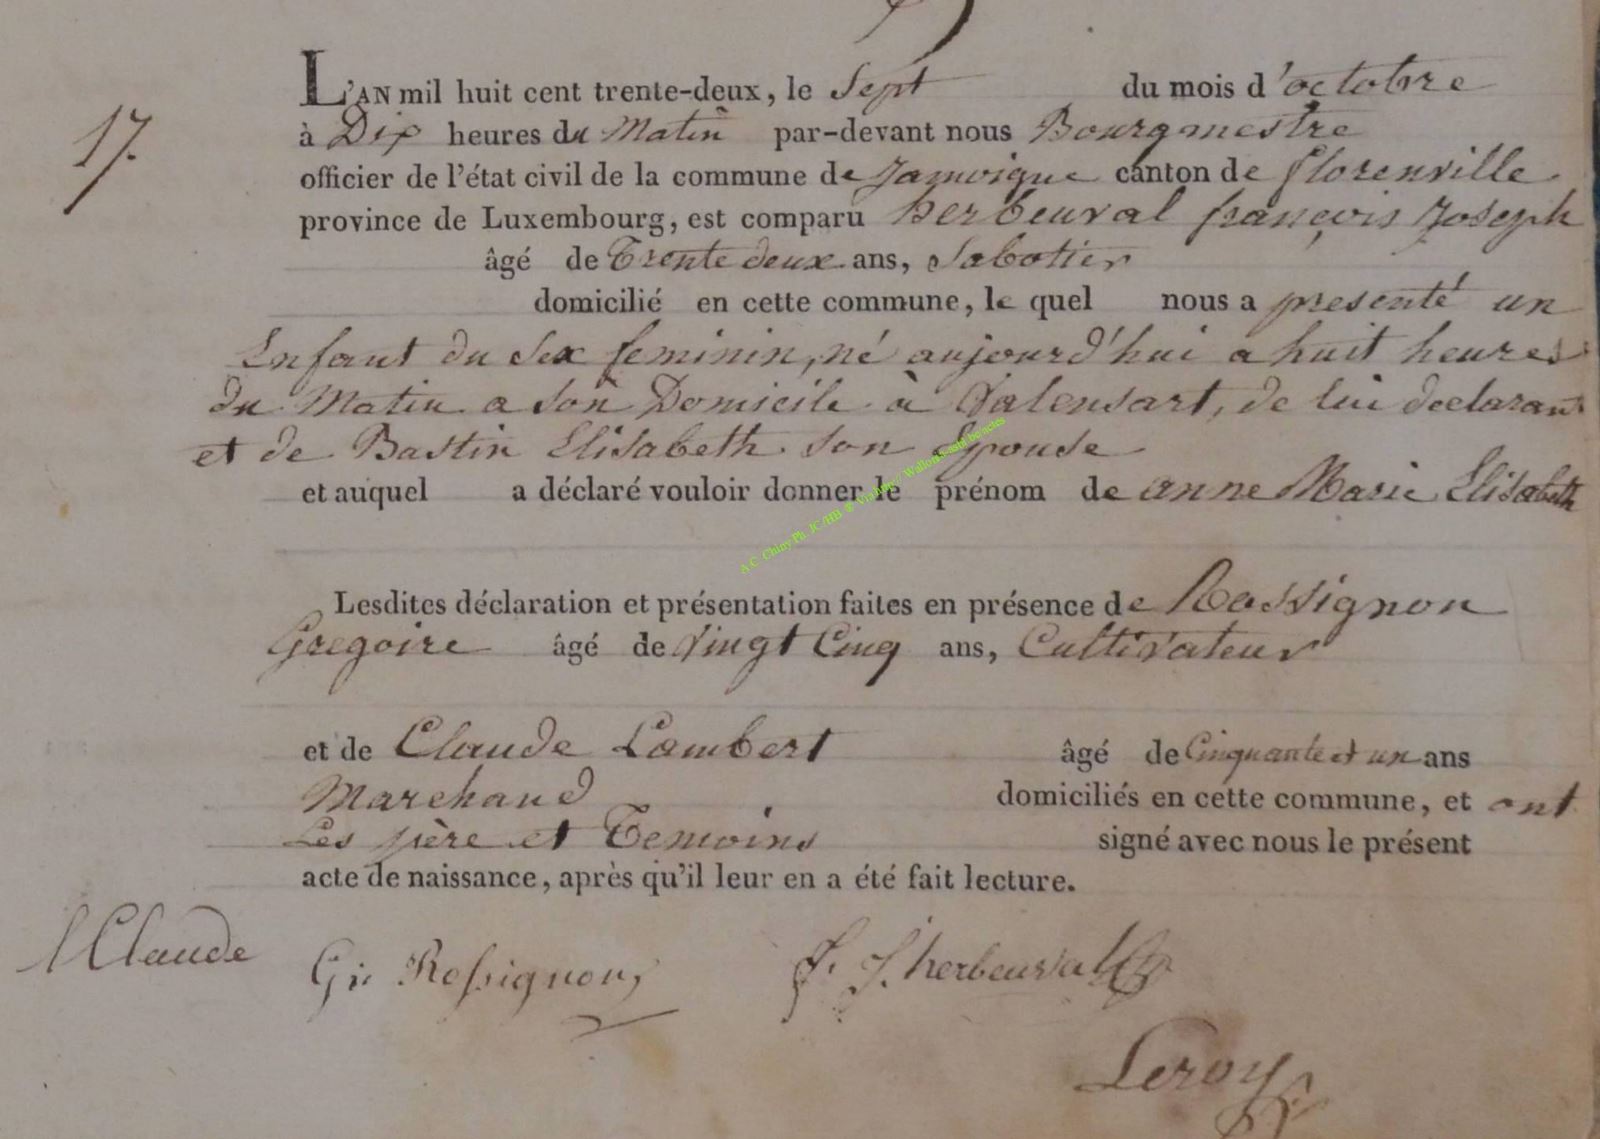 L'AN mil huit cent trente-deux, le Sept du mois d'octobre
17.
à Dix heures du Matin par-devant nous Bourgmestre
officier de l'état civil de la commune de Jamoigne canton de florenville
province de Luxembourg, est comparu herbeuval françois Joseph
âgé de Trente deux ans, Sabotier
domicilié en cette commune, le quel nous a presenté un
Enfant du Sex feminin, né aujourd'hui a huit heures
du Matin a son Domicile à Valensart, de lui declarant
et de Bastin Elisabeth son Epouse
et auquel a déclaré vouloir donner le prénom de anne Marie Elisabeth
A.C. Chiny Ph. JC/HB ®
Lesdites déclaration et présentation faites en présence de Rossignon
Gregoire âgé de Vingt Cinq ans, Cultivateur
et de Claude Lambert âgé de Cinquante et un ans
Marchand domiciliés en cette commune, et ont
Les père et Temoins signé avec nous le présent
acte de naissance, après qu'il leur en a été fait lecture.
l Claude Gr. Rossignon f. J. herbeuval
Leroy